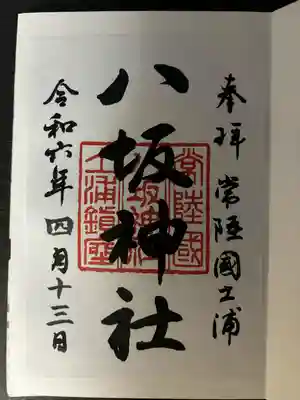 奉拝 常陸國土浦
八坂神社
常陸國
八坂神社
土浦鎮座
令和六年 四月十三日